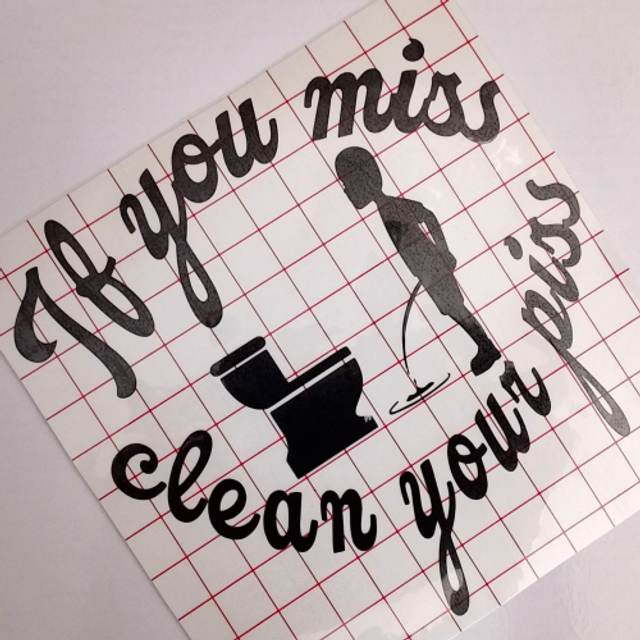 If you miss
clean your piss